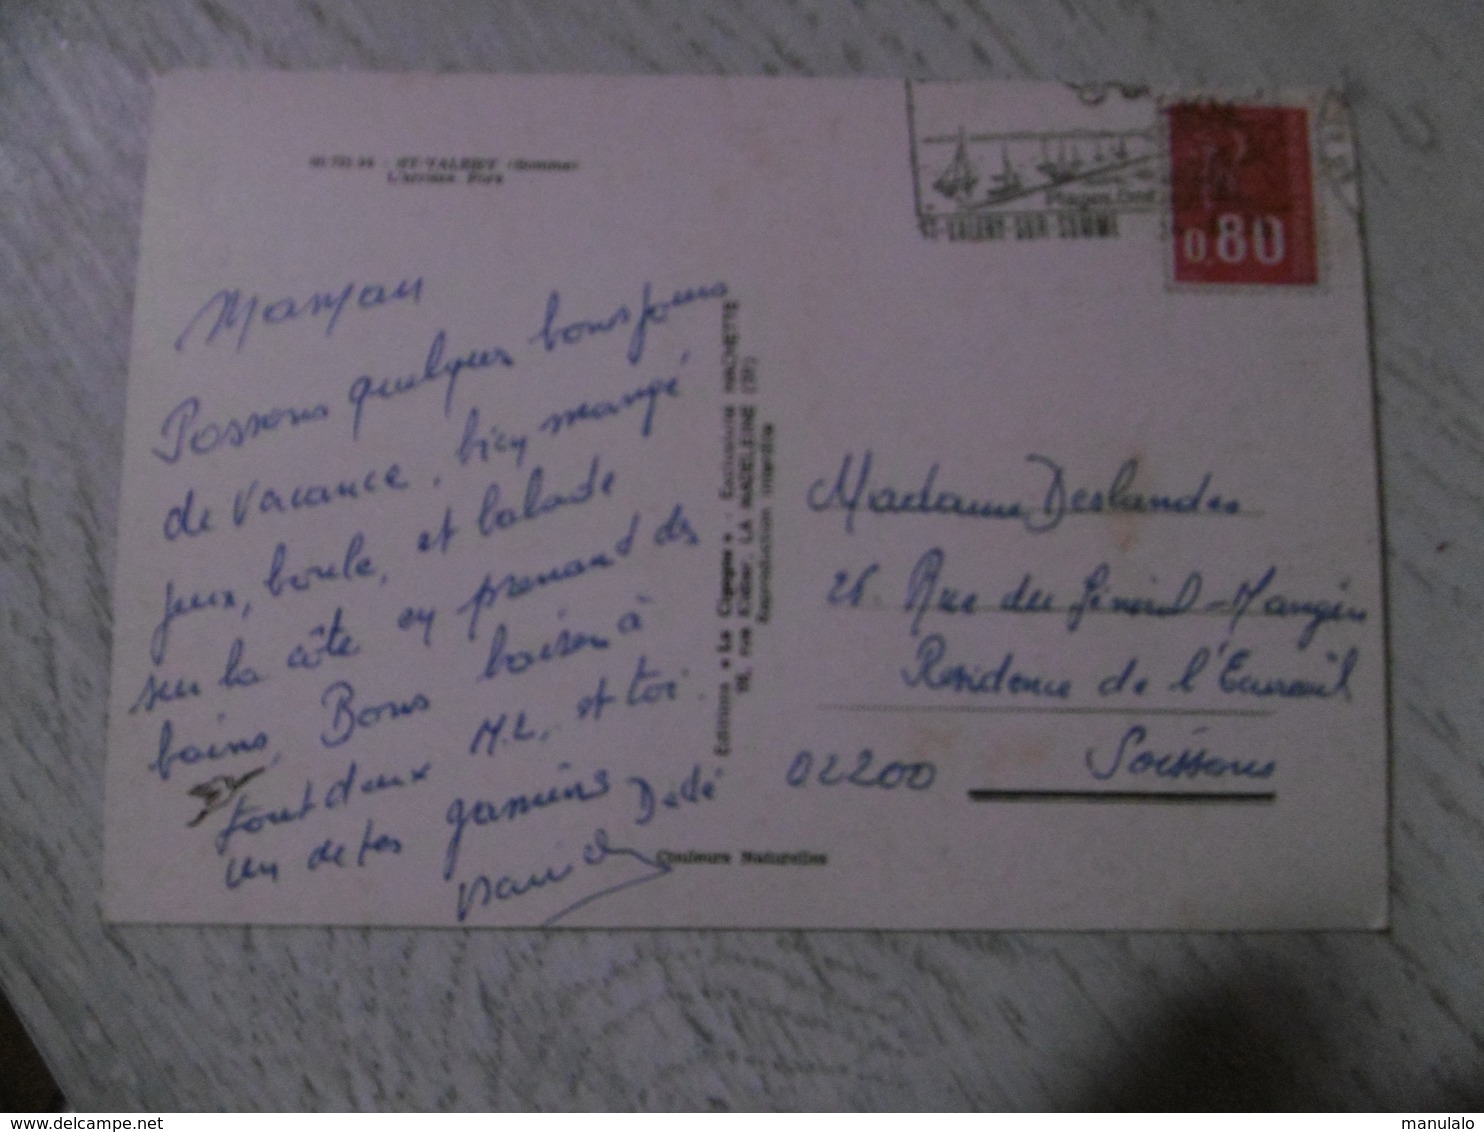 ST-VALERY (Somme)
Plages
ST-VALERY-SUR-SOMME
0,80
Manjan
Passons quelques bons jours
de vacance, bien mangé
jeux, boule, et balade
sur la côte en prenant des
bains. Bons baisers à
tout deux M.L. et toi.
un de tes gamins
Dédé
Editions « La Cigogne » - Exclusivité HACHETTE
rue Kléber, LA MADELEINE (59)
Reproduction interdite
Couleurs Naturelles
Madame Deslandes
26. Rue du Général-Mangin
Résidence de l'Ecureuil
02200 Soissons
www.delcampe.net
manulalo